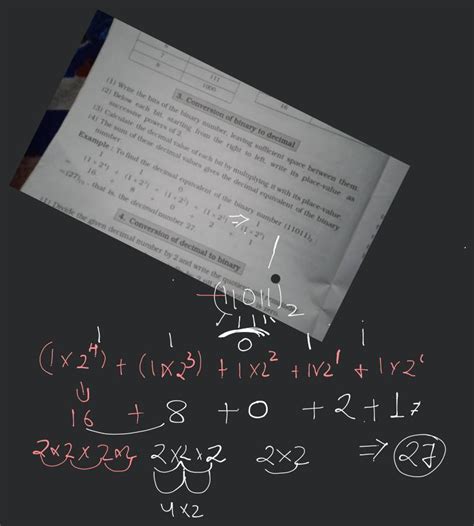 7
8
111
1000
16
3. Conversion of binary to decimal
(1) Write the bits of the binary number, leaving sufficient space between them.
(2) Below each bit, starting from the right to left, write its place-value as
successive powers of 2.
(3) Calculate the decimal value of each bit by multiplying it with its place-value.
(4) The sum of these decimal values gives the decimal equivalent of the binary
number.
Example : To find the decimal equivalent of the binary number (11011)₂
1 1 0 1 1
(1 × 2⁴) + (1 × 2³) + (1 × 2¹) + (1 × 2⁰)
= 16 + 8 + 0 + 2 + 1
= (27)₁₀, that is, the decimal number 27
4. Conversion of decimal to binary
(1) Divide the given decimal number by 2 and write the
(11011)₂
1 1 0 1 1
(1×2⁴) + (1×2³) + 1×2² + 1×2¹ + 1×2⁰
16 + 8 + 0 + 2 + 17
2×2×2×2 2×2×2 2×2 ⇒ 27
4×2